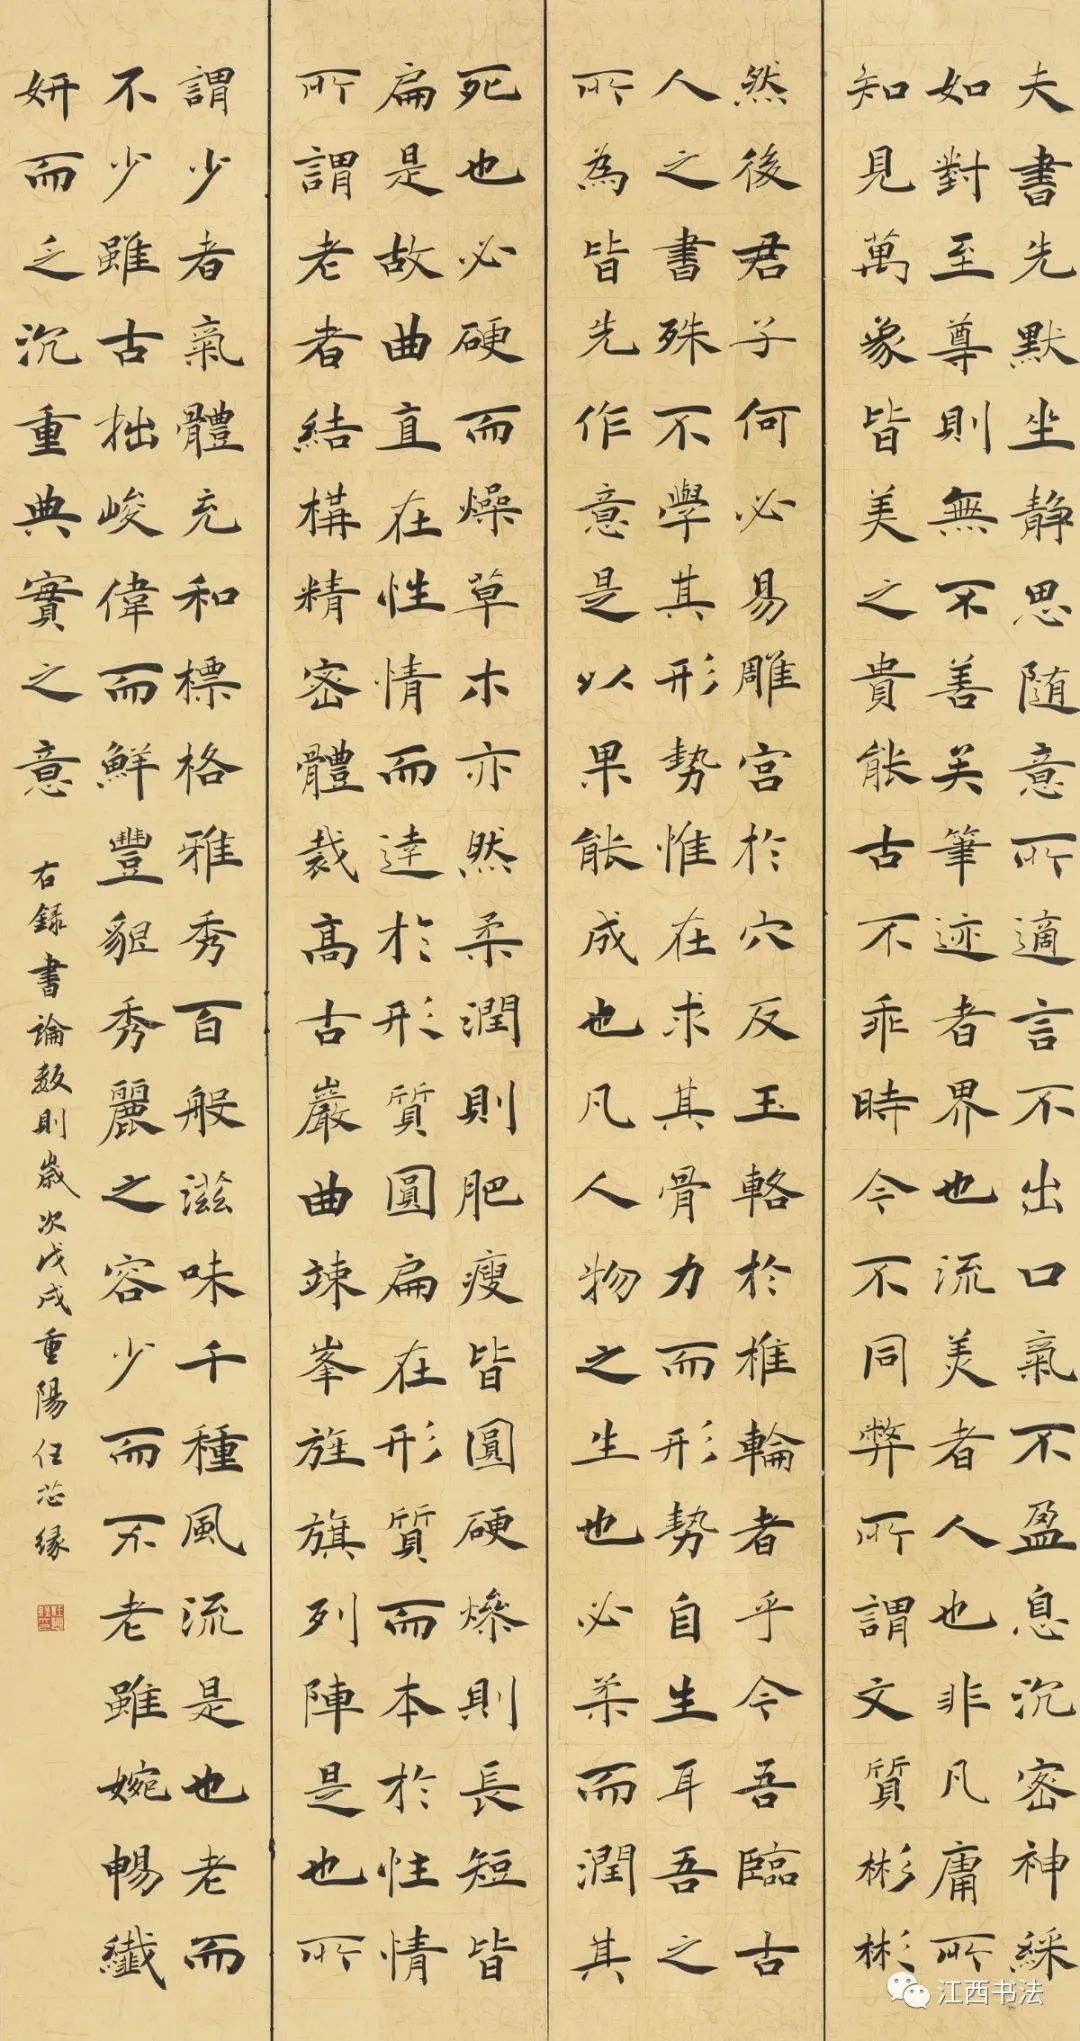 夫書先默坐静思随意所適言不出口氣不盈息沉密神綵
如對至尊則無不善矣筆迹者界也流美者人也非凡庸所
知見萬象皆美之貴能古不乖時今不同弊所謂文質彬彬
然後君子何必易雕宮於穴反玉輅於椎輪者乎今吾臨古
人之書殊不學其形勢惟在求其骨力而形勢自生耳吾之
所為皆先作意是以果能成也凡人物之生也必柔而潤其
死也必硬而燥草木亦然柔潤則肥瘦皆圓硬燥則長短皆
扁是故曲直在性情而達於形質圓扁在形質而本於性情
所謂老者結構精密體裁高古巖曲竦峯旌旗列陣是也所
謂少者氣體充和標格雅秀百般滋味千種風流是也老而
不少雖古拙峻偉而鮮豐貌秀麗之容少而不老雖婉暢纖
妍而乏沉重典實之意
右録書論數則歲次戊戌重陽任芯緣
江西书法